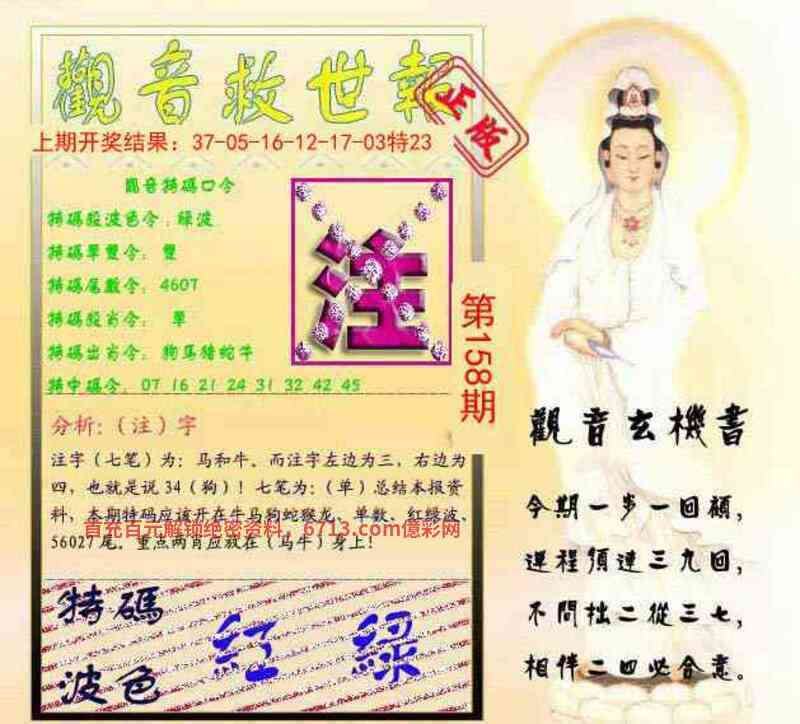 觀音救世報
正版
上期开奖结果：37-05-16-12-17-03特23
觀音特碼口令
特碼段波色令：綠波
特碼單雙令：雙
特碼尾數令：4607
特碼段肖令：單
特碼出肖令：狗馬猪蛇牛
特中碼令：07 16 21 24 31 32 42 45
注
第158期
分析：（注）字
注字（七笔）为：马和牛。而注字左边为三，右边为
四，也就是说34（狗）！七笔为：（单）总结本报资
料，本期特码应该开在牛马狗蛇猴龙、单数、红緑波、
首充百元解锁绝密资料，6713.com億彩网
56027尾。重点两肖应放在（马牛）身上！
特碼
波色
紅 綠
觀音玄機書
今期一步一回顧，
運程須連三九回，
不問拙二從三七，
相伴二四必合意。